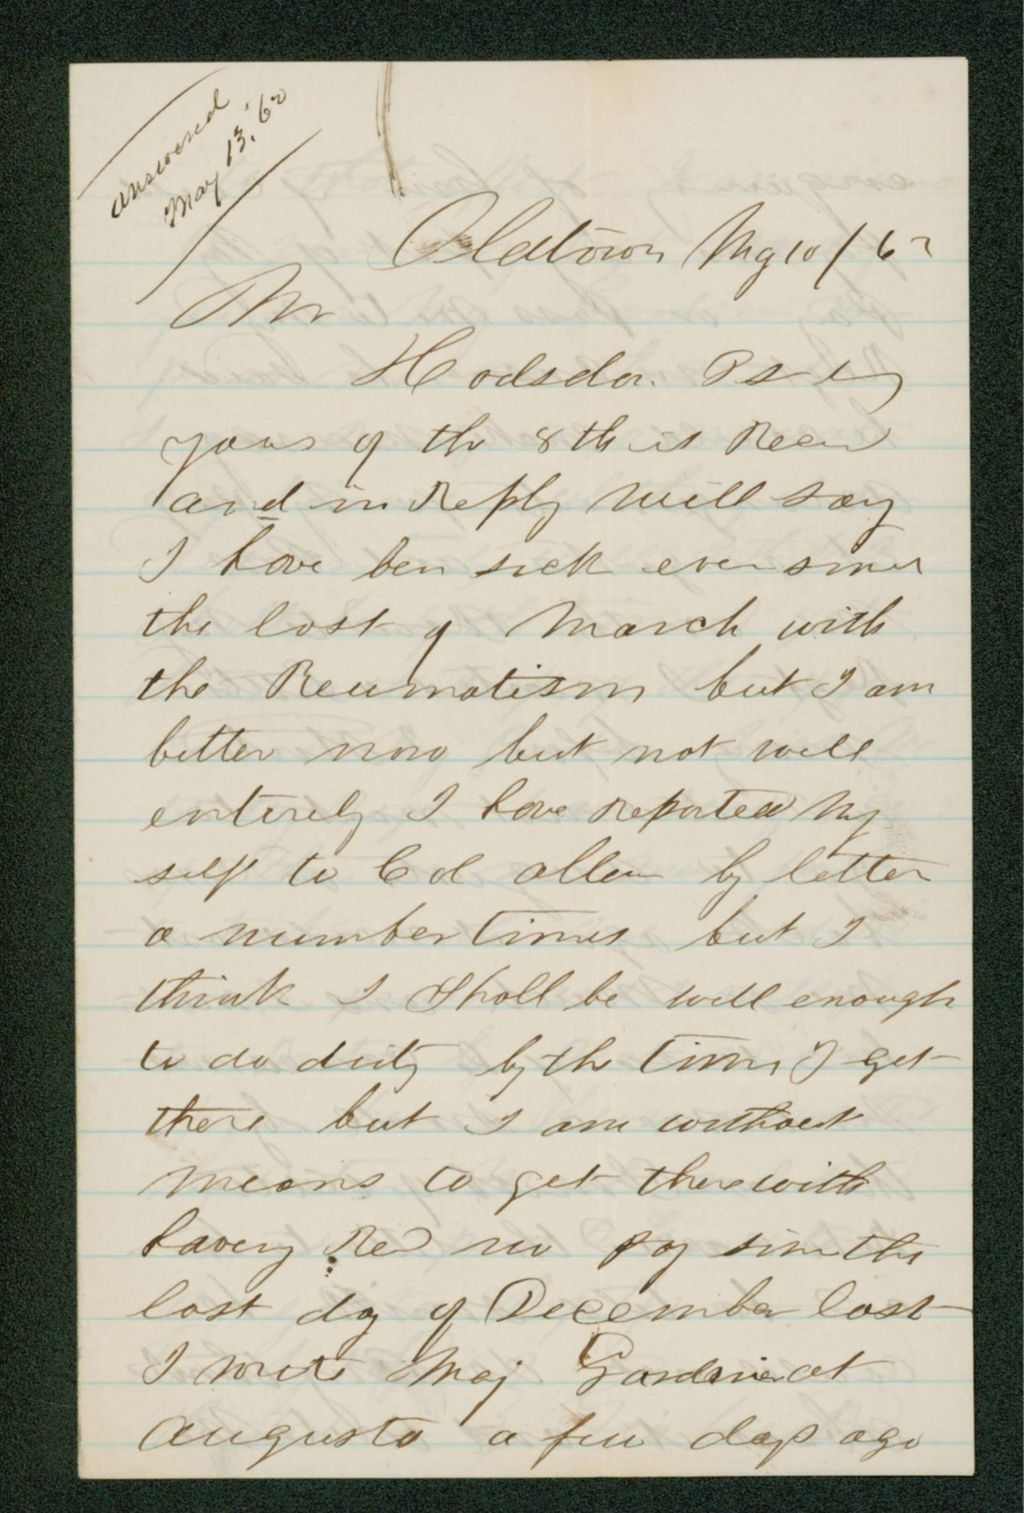 Answered
May 13, '62
Oldtown May 10/62
Mr
Hodsdon
yours of the 8th is Recd
and in Reply will say
I have ben sick ever since
the last of March with
the Reumatism but I am
better now but not well
enterely I have Reported my
self to Col Allen by letter
a number times but I
think I shall be well enough
to do duty by the time I get
there but I am without
means to get there with
haveng Red no pay sin the
last day of December last
I wrote Maj. Gardiner at
Augusta a few days ago